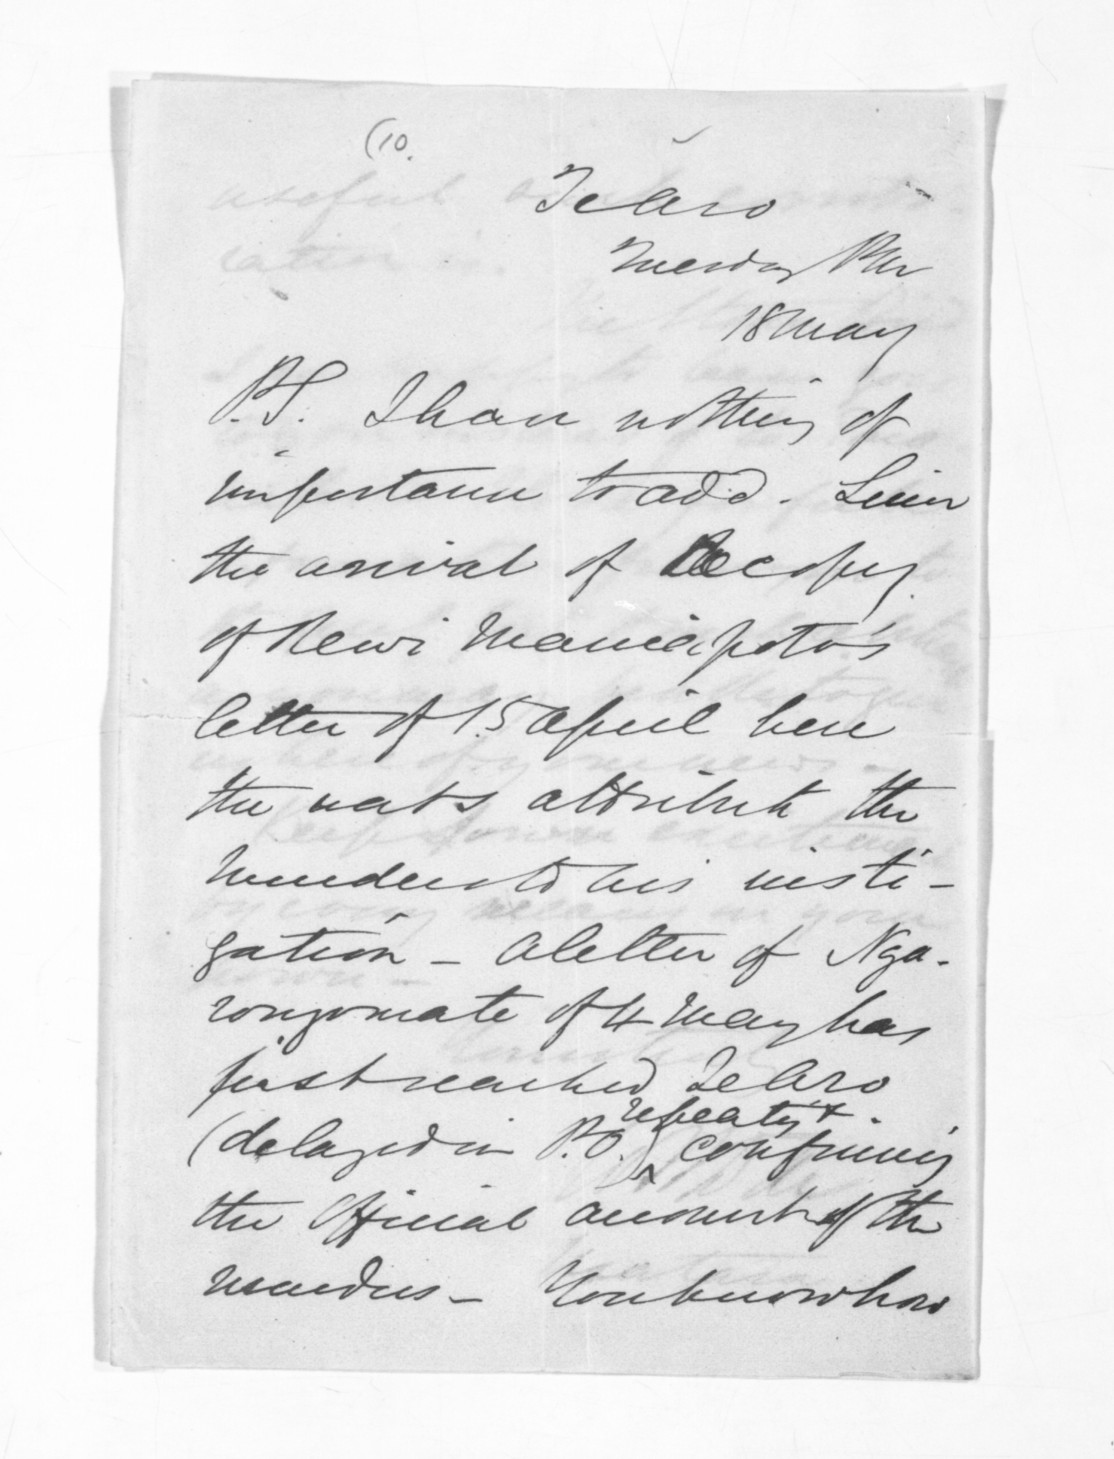 (10.
Te Aro
Tuesday PM
18 May
P.S. I have nothing of
importance to add. Since
the arrival of a copy
of Rewi Maniapoto's
letter of 15 April here
the nats attribute the
murders to his insti-
gation - A letter of Nga-
rongomate of 4 May has
just reached Te Aro
(delayed in P.O.) repeatg &
confirming
the official account of the
murders - You know how